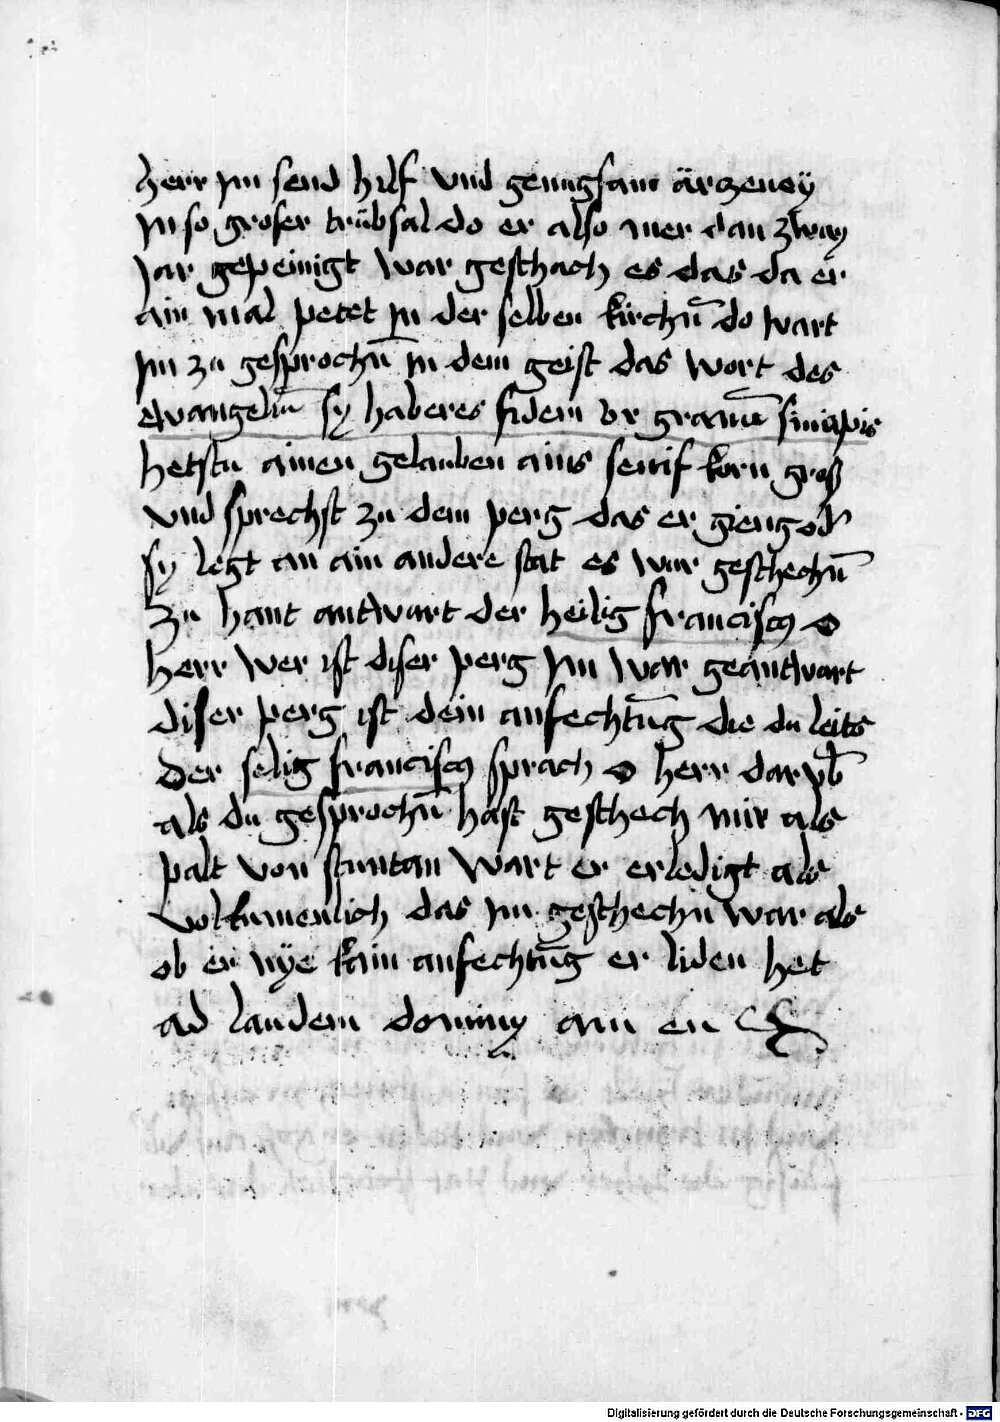 herr Im send hilf vnd genugsam ärzeney
In so groser trübsal do er also mer dan zway
Jar gepeinigt war geschach es das da er
ain mal petet In der selben kirchn̄ do wart
Im zu gesprochn̄ In dem geist das wort des
ewangeliu̅ sy haberes fidem vt granu̅ sinapis
hetstu ainen gelauben ains senif korn groß
vnd sprechst zu dem perg das er gieng od'
sy legt an ain andere stat es war geschechn̄
zu hant antwart der heilig francisc9 o
herr wer ist diser perg Im war geantwart
diser perg ist dein anfechtu̅g die du leits
Der selig francisc9 sprach o herr darvb̄
als du gesprochn̄ hast geschech mir als
palt von stuntan wart er erledigt als
volkumenlich das Im geschechn war als
ob er nye kain anfechtu̅g er liden het
ad laudem dominy am en
Digitalisierung gefördert durch die Deutsche Forschungsgemeinschaft - DFG